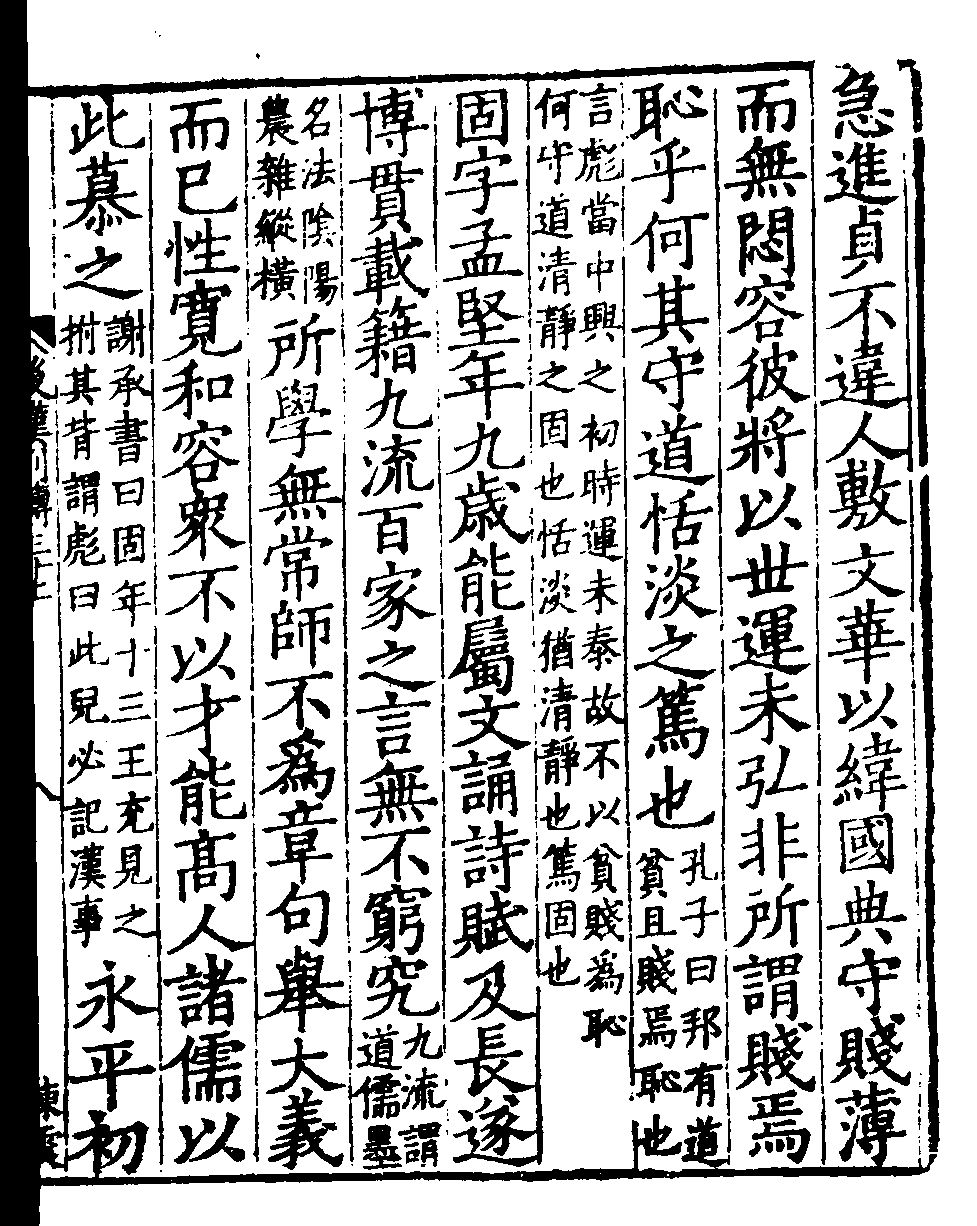 急進貞不違人敷文華以緯國典守賤薄
而無悶容彼將以世運未弘非所謂賤焉
恥乎何其守道恬淡之篤也孔子曰邦有道
貧且賤焉恥也
言彪當中興之初時運未泰故不以貧賤爲恥
何守道清靜之固也恬淡猶清靜也篤固也
固字孟堅年九歲能屬文誦詩賦及長遂
博貫載籍九流百家之言無不窮究九流謂
道儒墨
名法陰陽
農雜縱橫所學無常師不爲章句舉大義
而已性寬和容衆不以才能高人諸儒以
此慕之謝承書曰固年十三王充見之
拊其背謂彪曰此兒必記漢事永平初
後漢列傳三十
八